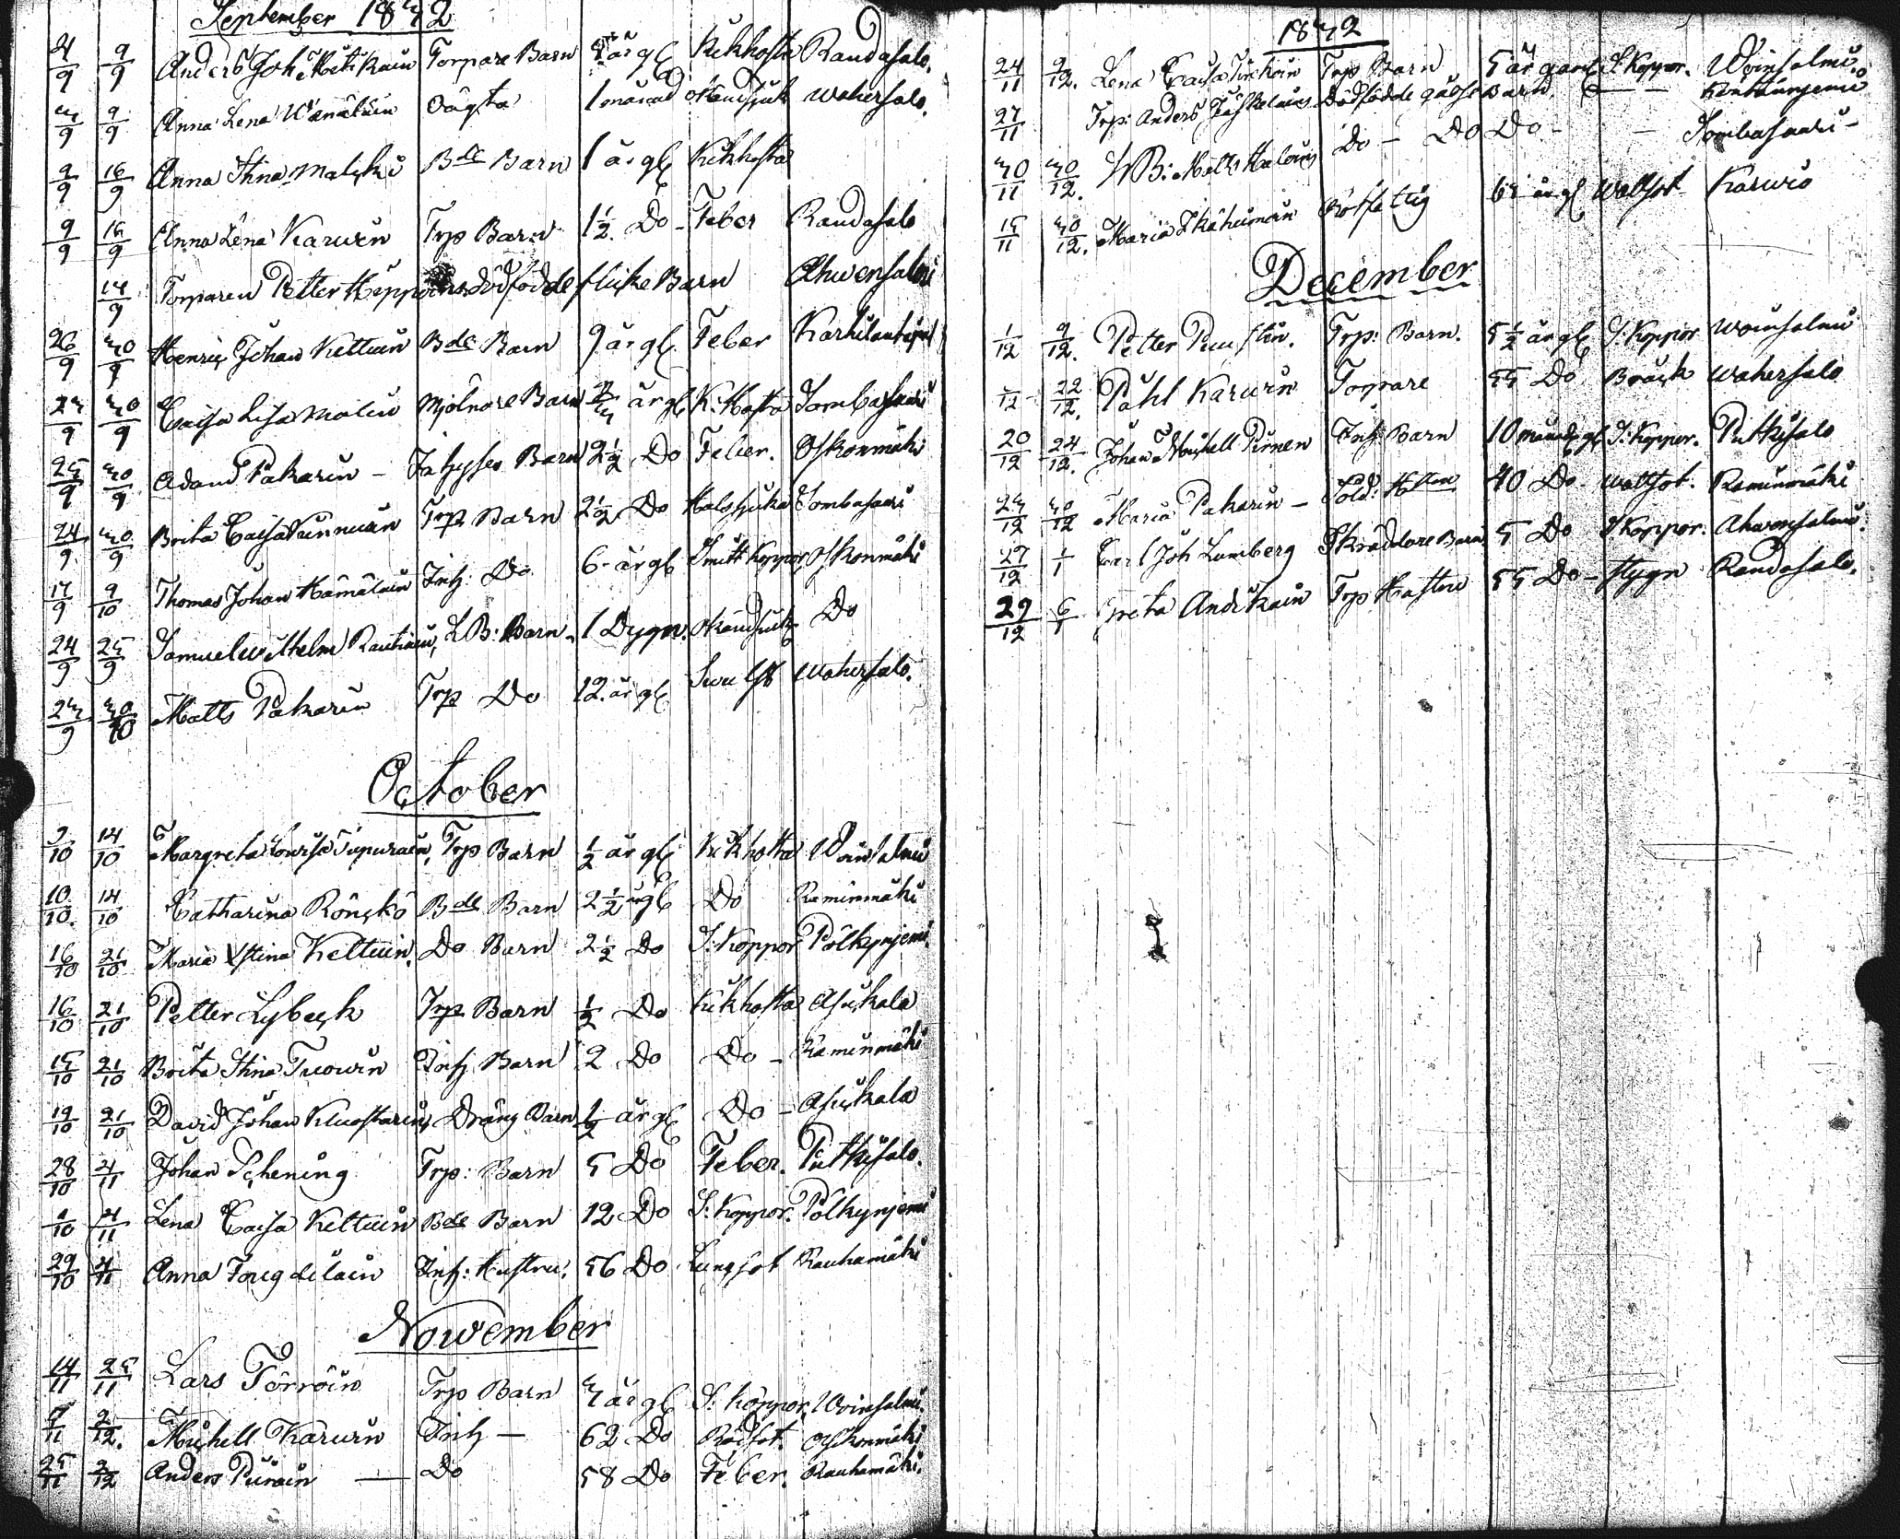 September 1832
4/9 9/9 Anders Joh: Torpare Barn år gl Kikhosta Randasalo.
3/9 9/9 Anna Lena 1 månad Wahersalo.
9/9 16/9 Anna Stina Barn 1 år gl Kikhosta
9/9 16/9 Anna Lena Karwin Trp Barn 1½ Do - Feber Randasalo
14/9 Torparen Petter dödfödde flicke Barn Ahwensalmi
26/9 30/9 Henric Johan Kettuin Bde Barn 9 år gl Feber
23/9 30/9 Caisa Lisa Malin Mjölnare Barn år gl K: Hosta Sombasaari
25/9 30/9 Adam Pakarin - Barn 2½ Do Feber. Oskonmäki
24/9 30/9 Brita Caisa Trp Barn 2½ Do Halssjuka Sombasaari
17/9 9/10 Thomas Johan Hämäläin Inh: Do 6 år gl Smitt Koppor Oskonmäki
24/9 25/9 Samuel Wilhelm Rautiain, L B: Barn 1 Dygn. Do
23/9 30/10 Matts Pakarin Trp Do 12 år gl Wahersalo.
October
7/10 14/10 Margreta Lovisa Trp Barn ½ år gl Kikhosta Woinsalmi
10/10 14/10 Catharina Rönckö Bde Barn 2½ år gl Do Raminmäki
16/10 21/10 Maria Stina Kettuin. Do Barn 2½ Do S: Koppor Pölkynjemi
16/10 21/10 Petter Lybeck Trp Barn ½ Do Kikhosta Asickala
15/10 21/10 Brita Stina Inh Barn 2 Do Do - Raminmäki
19/10 21/10 David Johan Dräng Barn ½ år gl Do - Asickala
28/10 4/11 Johan Schening Trp: Barn 5 Do Feber. Putkisalo.
/10 4/11 Lena Caisa Kettuin Bde Barn 12 Do S: Koppor. Pölkynjemi
29/10 4/11 Anna Inh: Hustru. 56 Do Lungsot Rauhamäki
November
14/11 25/11 Lars Törröin Trp Barn 3 år gl S: Koppor. Woinsalmi.
/11 2/12. Michell Karwin Inh - 62 Do Rödsot. Oskonmäki
25/11 2/12 Anders Piiroin - Do 58 Do Feber. Rauhamäki.
1832
24/11 9/12. Lena Caisa Trp Barn 5 år S Koppor. Woinsalmi.
27/11 Trp: Anders Dödfödde gosse Barn
30/11 30/12. LB: Matts Do - Do Do - Sombasaari -
15/11 30/12. Maria 63 år gl Wattsot Karwio
December
1/12 9/12. Petter Puustin. Trp: Barn. 5½ år gl S: Koppor Woinsalmi
/12 22/12. Påhl Karwin Torpare 55 Do Bråck Wahersalo
20/12 24/12. Johan Michell Piroinen Inh: Barn 10 månad gl S: Koppor. Putkisalo
23/12 30/12 Maria Pakarin - Sold: 40 Do - Wattsot. Raminmäki
27/12 1/1 Carl Joh Lumberg Skräddare Barn 5 Do S Koppor. Ahwensalmi.
29/12 6/1 Greta Andikain Trp Hustru 55 Do - Stygn Randasalo.